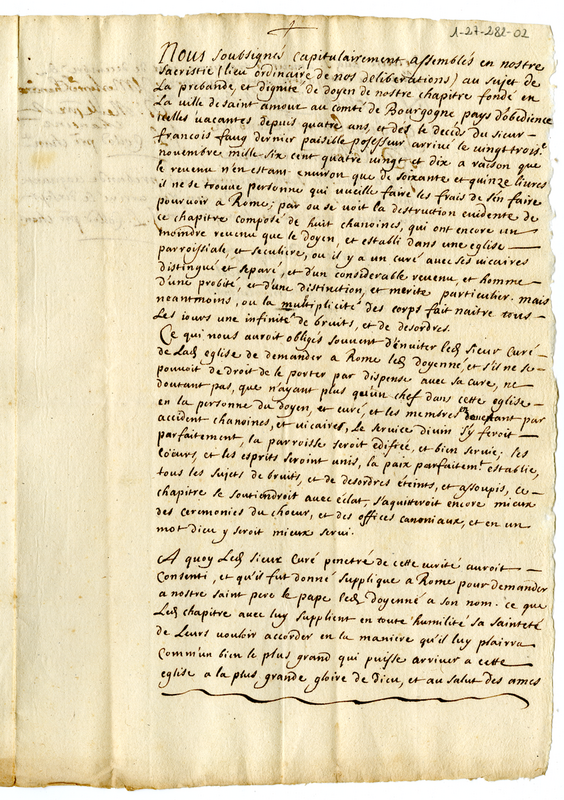 1-27-282-02
Nous soubsignés Capitulairement assemblés en nostre
sacristie (lieu ordinaire de nos deliberations) au sujet de
La prebande, et dignité de doyen de nostre chapitre fondé en
La ville de saint amour au comté de Bourgogne pays d'obedience
icelles vacantes depuis quatre ans, et dés le decid du sieur
françois faug dernier paisible posesseur arrivé le vingt trois.e
novembre mille six cent quatre vingt et dix a raison que
le revenu n'en estant environ que de soixante et quinze livres
il ne se trouve personne qui vueille faire les frais de s'en faire
pourvoir a Rome; par ou se voit la destruction evidente de
ce chapitre composé de huit chanoines, qui ont encore un
moindre revenu que le doyen, et establi dans une eglise
parroissiale et seculiere, ou il y a un curé avec ses vicaires
distingué et separé, et d'un considerable revenu, et homme
d'une probité, et d'une distinction, et merite particulier. mais
neantmoins, ou la multiplicité des corps fait naitre tous
Les jours une infinité de bruits, et de desordres.
Ce qui nous auroit obligés souvent d'enviter led. sieur Curé
de Lad. eglise de demander a Rome led. doyenné, et s'il ne se
pouvoit de droit de le porter par dispense avec sa cure, ne
doutant pas, que n'ayant plus qu'un chef dans cette eglise
en la personne du doyen, et curé, et les membres estant par
accident chanoines, et vicaires, Le service divin s'y feroit
parfaitement, la parroisse seroit edifiée, et bien servie; les
coeurs, et les esprits seroint unis, la paix parfaitem.t establie,
tous les sujets de bruits, et de desordres eteints, et assoupis, ce
chapitre se soutiendroit avec éclat, s'aquitteroit encore mieux
des ceremonies du choeur, et des offices canoniaux, et en un
mot dieu y seroit mieux servi.
A quoy Led. sieur Curé penetré de cette verité auroit
Consenti, et qu'il fut donné supplique a Rome pour demander
a nostre saint pere le pape led. doyenné a son nom. ce que
Led. chapitre avec luy supplient en toute humilité sa sainteté
de Leurs vouloir accorder en la maniere qu'il luy plairra
Comm'un bien le plus grand qui puisse arriver a cette
eglise a la plus grande gloire de Dieu, et au salut des ames